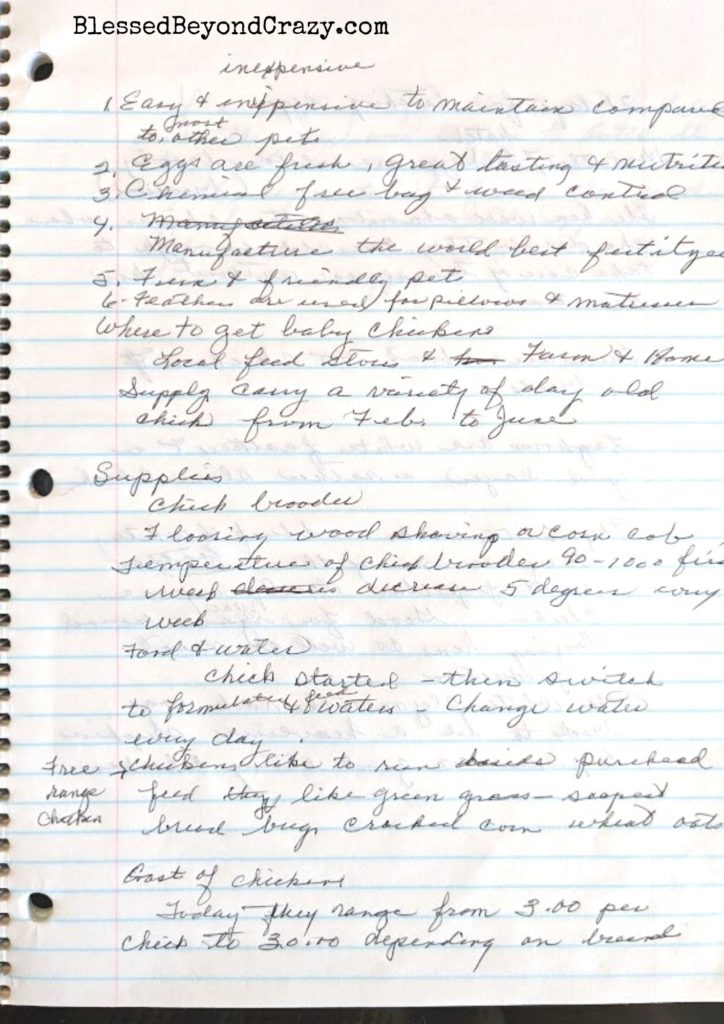 BlessedBeyondCrazy.com
inexpensive
1. Easy & inexpensive to maintain compare
most
to other pets
2. Eggs are fresh, great tasting & nutritio
3. Chemical free bug & weed control
4.
Manufacture the world best
5. Fun & friendly pet
6. Feathers are used for pillows & matresses
Where to get baby chickens
Local feed stores & Farm & Home
Supply carry a variety of day old
chick from Feb. to June
Supplies
Chick brooder
Flooring wood shaving or corn cob,
Temperature of chick brooder 90-100o firs
week decrease 5 degrees every
week
Food & water
Chick started - then switch
to formulated feed & waters - Change water
every day.
Free range Chicken
Chickens like to run
feed they like green grass -
bread bugs cracked corn wheat oats
Cost of chickens
Today they range from 3.00 per
chick to 30.00 depending on breed